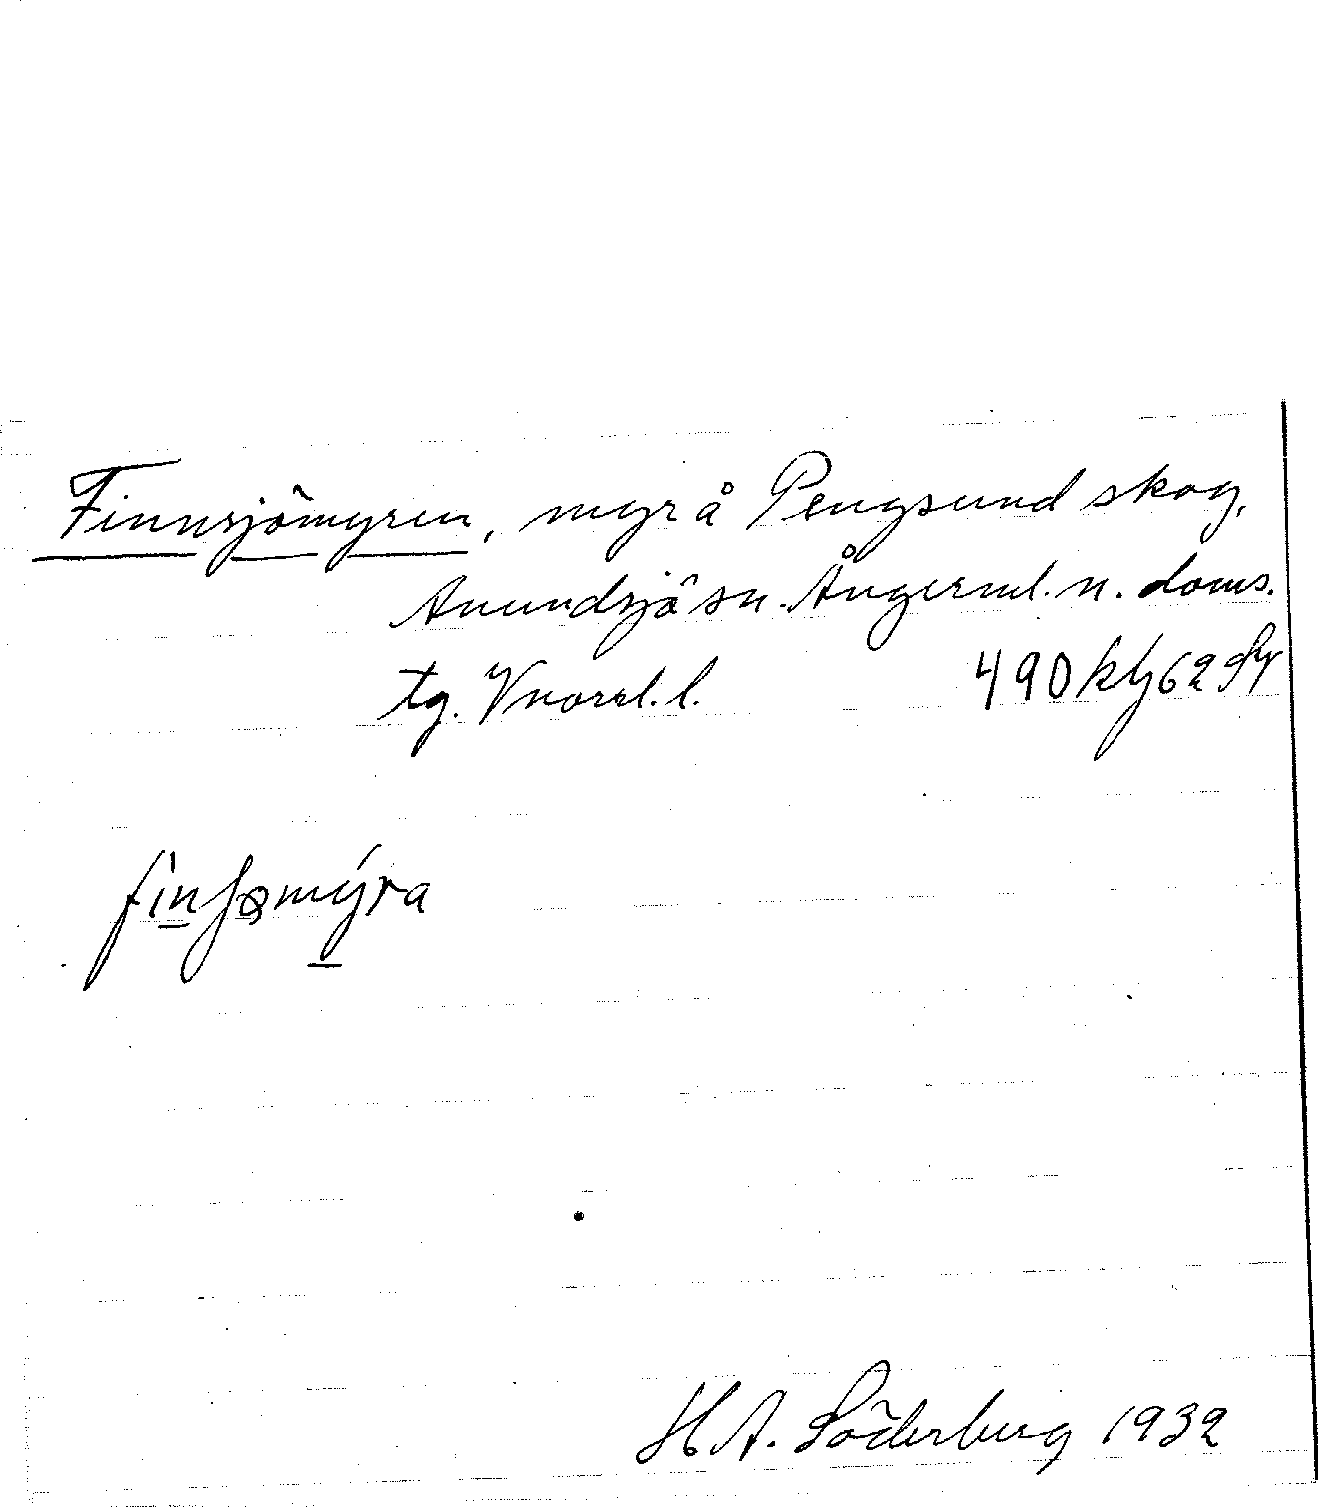 Finnsjömyren, myr å Pengsund skog,
Anundsjö sn. Ångerml. n. doms.
tg. Vnorrl. l. 490 klg 62
H A. Söderberg 1932